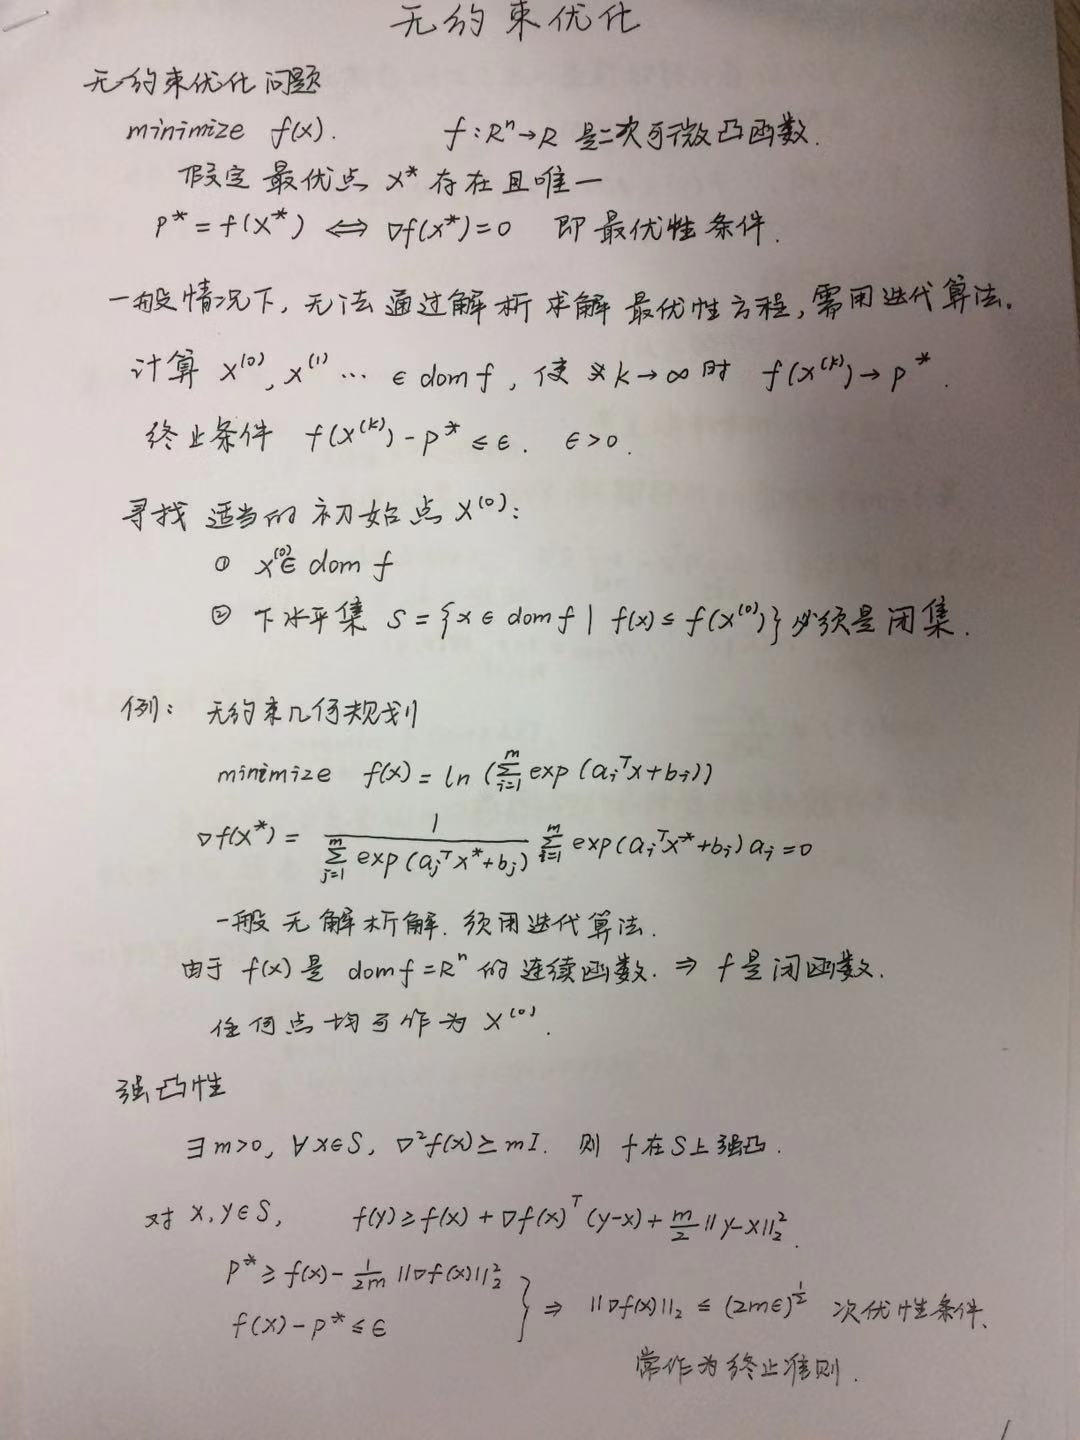 无约束优化
无约束优化问题
minimize f(x). f:Rⁿ→R 是二次可微凸函数.
假定最优点 x* 存在且唯一
p* = f(x*) ⟺ ∇f(x*)=0 即最优性条件.
一般情况下, 无法通过解析求解最优性方程, 需用迭代算法.
计算 x⁽⁰⁾, x⁽¹⁾ … ∈ dom f, 使当 k→∞ 时 f(x⁽ᵏ⁾)→p*.
终止条件 f(x⁽ᵏ⁾)-p* ≤ ϵ. ϵ>0.
寻找适当的初始点 x⁽⁰⁾:
① x⁽⁰⁾∈ dom f
② 下水平集 S = {x ∈ dom f | f(x) ≤ f(x⁽⁰⁾)} 必须是闭集.
例: 无约束几何规划
minimize f(x) = ln (∑_{i=1}^{m} exp (a_i^T x+b_i))
∇f(x*) = \frac{1}{∑_{j=1}^{m} exp (a_j^T x*+b_j)} ∑_{i=1}^{m} exp(a_i^T x*+b_i) a_i = 0
一般无解析解. 须用迭代算法.
由于 f(x) 是 dom f = Rⁿ 的连续函数. ⇒ f 是闭函数.
任何点均可作为 x⁽⁰⁾.
强凸性
∃ m>0, ∀x∈S, ∇²f(x) ≥ mI. 则 f 在 S 上强凸.
对 x, y∈S, f(y) ≥ f(x) + ∇f(x)^T (y-x) + \frac{m}{2} ||y-x||₂².
p* ≥ f(x) - \frac{1}{2m} ||∇f(x)||₂²
f(x)-p* ≤ ϵ } ⇒ ||∇f(x)||₂ ≤ (2mϵ)^{\frac{1}{2}} 次优性条件、
常作为终止准则.
1